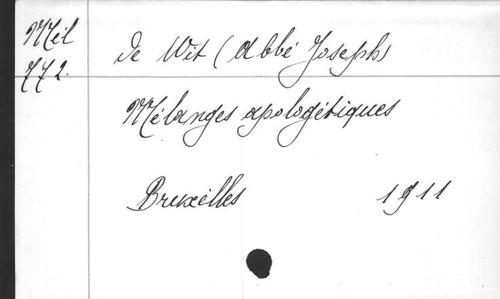 Mél
772.
De Wit (Abbé Joseph)
Mélanges apologétiques
Bruxelles 1911